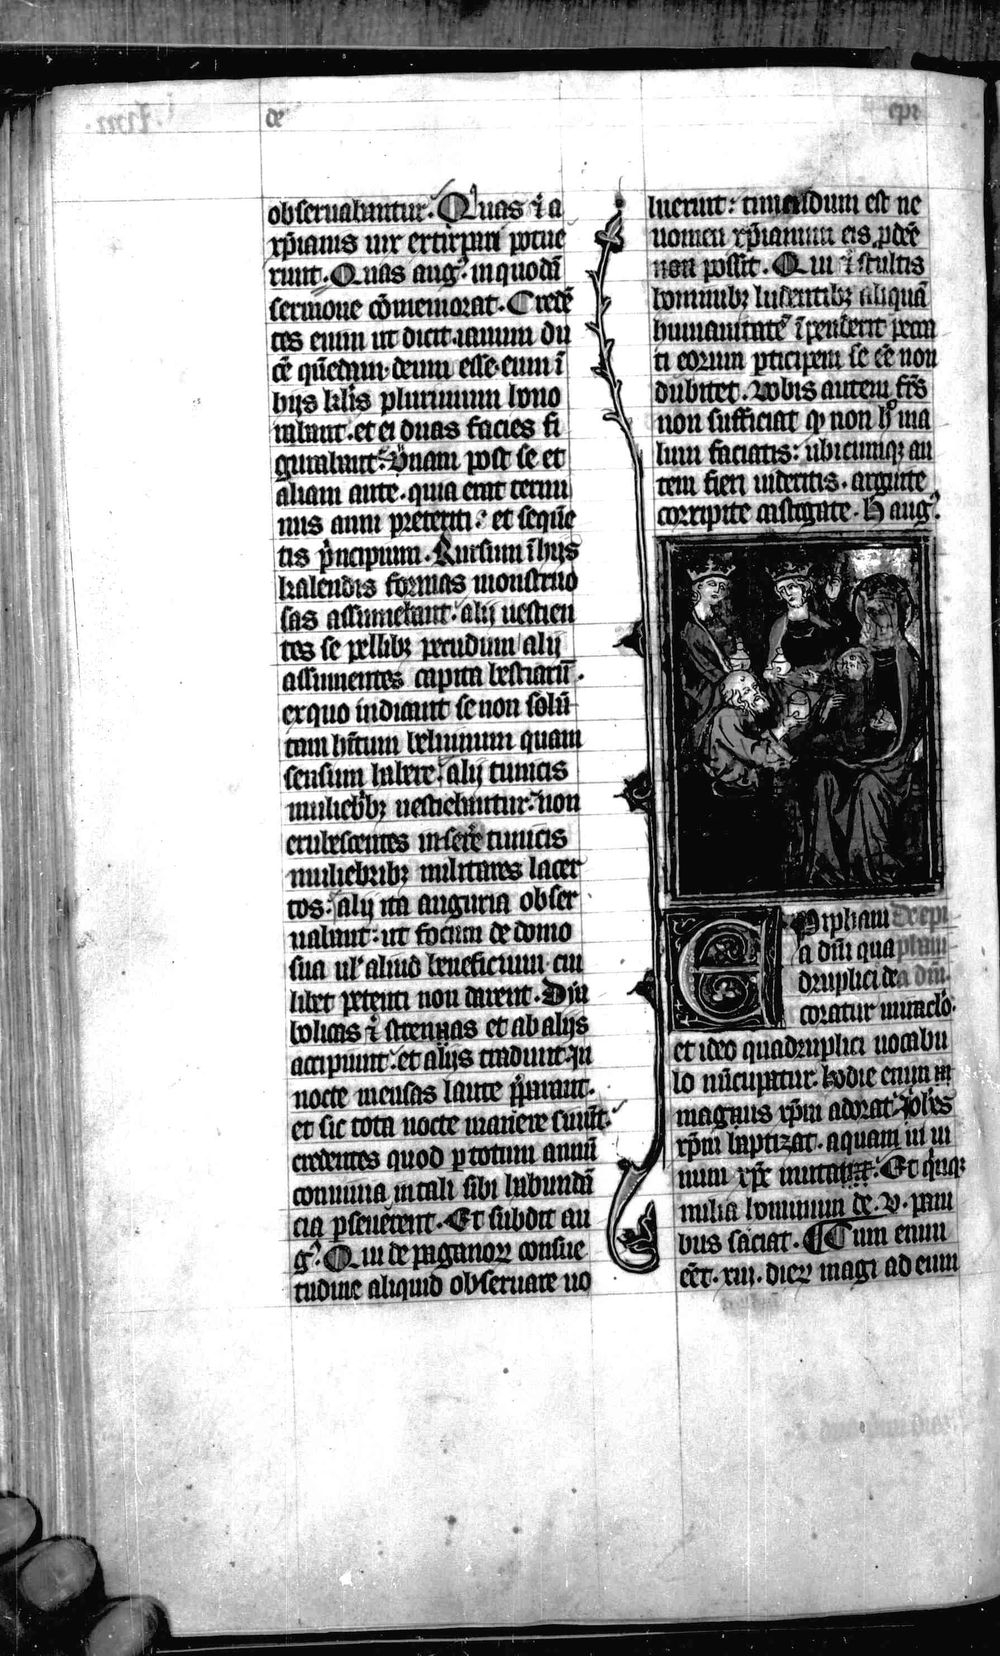 de
epi
obseruabantur. Quas ⁊ a
xp̄ianis uix extirpari potue
runt. Quas augꝰ. in quodā
sermone cōmemorat. Credē
tes enim ut dicit ianum du
cē quēdam deum esse. eum ī
hijs kl̄is plurimum hono
rabant. et ei duas facies fi
gurabant. Vnam post se et
aliam ante. quia erat termi
nus anni preteriti. et sequē
tis principium. Rursum ī hijs
kalendis formas monstruo
sas assumebant. alij uestien
tes se pellibꝫ pecudum alij
assumentes capita bestiarū.
ex quo indicant se non solū
tam habitum beluinum quam
sensum habere. alij tunicis
muliebribꝫ uestiebantur. non
erubescentes inserē tunicis
muliebribꝫ militares lacer
tos. alij ita auguria obser
uabant. ut focum de domo
sua ul' aliud beneficium cui
libet petenti non darent. Dya
bolicas ⁊ strennas et ab alijs
accipiunt. et alijs tradunt. in
nocte mensas laute p̄parant.
et sic tota nocte manere sinūt.
credentes quod p totum annū
conuiuia in tali sibi habundā
cia pseuerent. Et subdit au
gꝰ. Qui de paganoꝝ consue
tudine aliquid obseruare uo
luerint: timendum est ne
nomen xp̄ianum eis pdeē
non possit. Qui ⁊ stultis
hominibꝫ ludentibꝫ aliquā
humanitatē īpenderit pecca
ti eorum pticipem se eē non
dubitet. Vobis autem frēs
non sufficiat ꝙ non hͦ ma
lum faciatis: ubicumqꝫ au
tem fieri uideritis. arguite
corripite castigate. H augꝰ.
Epiphani De epi
a dn̄i qua phani
druplici de a dn̄i.
coratur miraclo.
et ideo quadruplici uocabu
lo nūcupatur. hodie enim
magi xp̄m adorat. Ioh̄es
xp̄m baptizat. aquam in ui
num xp̄c mutat. Et quīqꝫ
milia hominum de .v. pani
bus saciat. Cum enim
eēt .xiij. dieꝝ magi ad eum